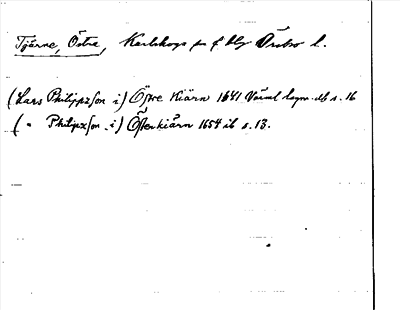 Tjärne, Östra, Karlskoga sn f bg Örebro l.
(Lars Philipzson i) Öfre Kiärn 1641 Värml lagm. db s. 16
( " Philipzson i) Östenkiärn 1654 ib s. 13.